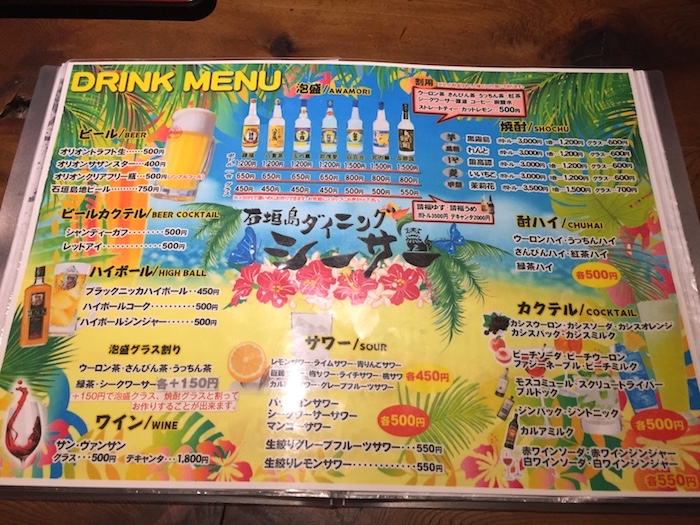 DRINK MENU
ビール/BEER
オリオンドラフト生‥‥500円
オリオンサザンスター‥‥400円
オリオンクリアフリー瓶‥‥500円
石垣島地ビール‥‥‥‥750円
ビールカクテル/BEER COCKTAIL
シャンディーガフ‥‥‥‥500円
レッドアイ‥‥‥‥‥‥500円
ハイボール/HIGH BALL
ブラックニッカハイボール‥‥450円
ハイボールコーク‥‥‥‥500円
ハイボールジンジャー‥‥‥500円
泡盛グラス割り
ウーロン茶・さんぴん茶・うっちん茶
緑茶・シークワーサー各+150円
+150円で泡盛グラス、焼酎グラスと割って
お作りすることが出来ます。
ワイン/WINE
サン・ヴァンサン
グラス‥‥500円 デキャンタ‥‥1,800円
泡盛/AWAMORI
1200 1200 1200 1200 1200 1500 1500
450 450 650 650 650 800 800
450 450 450 450 450 550 550
石垣島ダイニング
シーサー
請福ゆず・請福うめ
ボトル3500円 デキャンタ2000円
サワー/SOUR
レモンサワー・ライムサワー・青りんごサワー
巨峰サワー・梅サワー・ライチサワー・桃サワー
カルピスサワー・グレープフルーツサワー
各450円
パインサワー
シークワーサーサワー
マンゴーサワー
各500円
生絞りグレープフルーツサワー‥‥550円
生絞りレモンサワー‥‥‥‥550円
割用
ウーロン茶 さんぴん茶 うっちん茶 紅茶
シークワーサー 緑茶 コーヒー 炭酸水
ストレートティー カットレモン 500円
焼酎/SHOCHU
黒霧島 ボトル‥3,000円 1合‥1,200円 グラス‥600円
れんと ボトル‥3,000円 1合‥1,200円 グラス‥600円
いいちこ ボトル‥3,000円 1合‥1,200円 グラス‥600円
茉莉花 ボトル‥3,500円 1合‥1,500円 グラス‥700円
酎ハイ/CHUHAI
ウーロンハイ・うっちんハイ
さんぴんハイ・紅茶ハイ
緑茶ハイ
各500円
カクテル/COCKTAIL
カシスウーロン・カシスソーダ・カシスオレンジ
カシスバック・カシスミルク
ピーチソーダ・ピーチウーロン
ファジーネーブル・ピーチミルク
モスコミュール・スクリュードライバー
ブルドック
ジンバック・ジントニック
カルアミルク
各500円
赤ワインソーダ・赤ワインジンジャー
白ワインソーダ・白ワインジンジャー
各550円